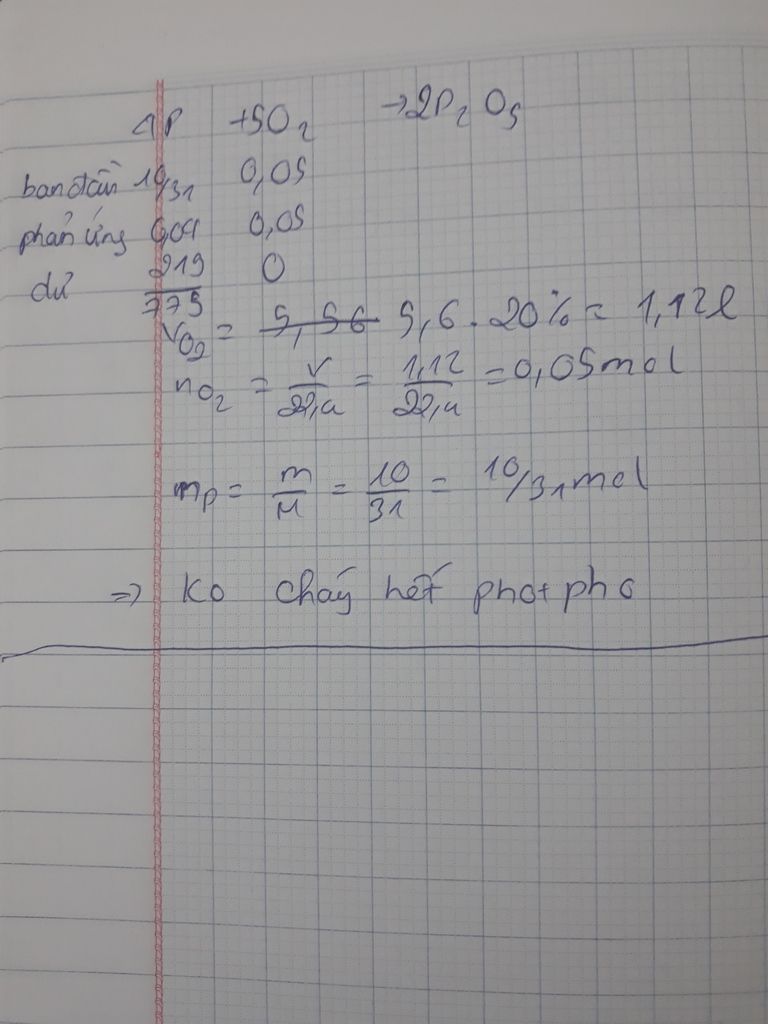 4P + 5O2 → 2P2O5
ban đầu 10/31 0,05
phản ứng 0,04 0,05
dư 219/775 0
VO2 = 5,56 5,6 . 20% = 1,12l
nO2 = V/22,4 = 1,12/22,4 = 0,05mol
nP = m/M = 10/31 = 10/31 mol
=> Ko cháy hết photpho